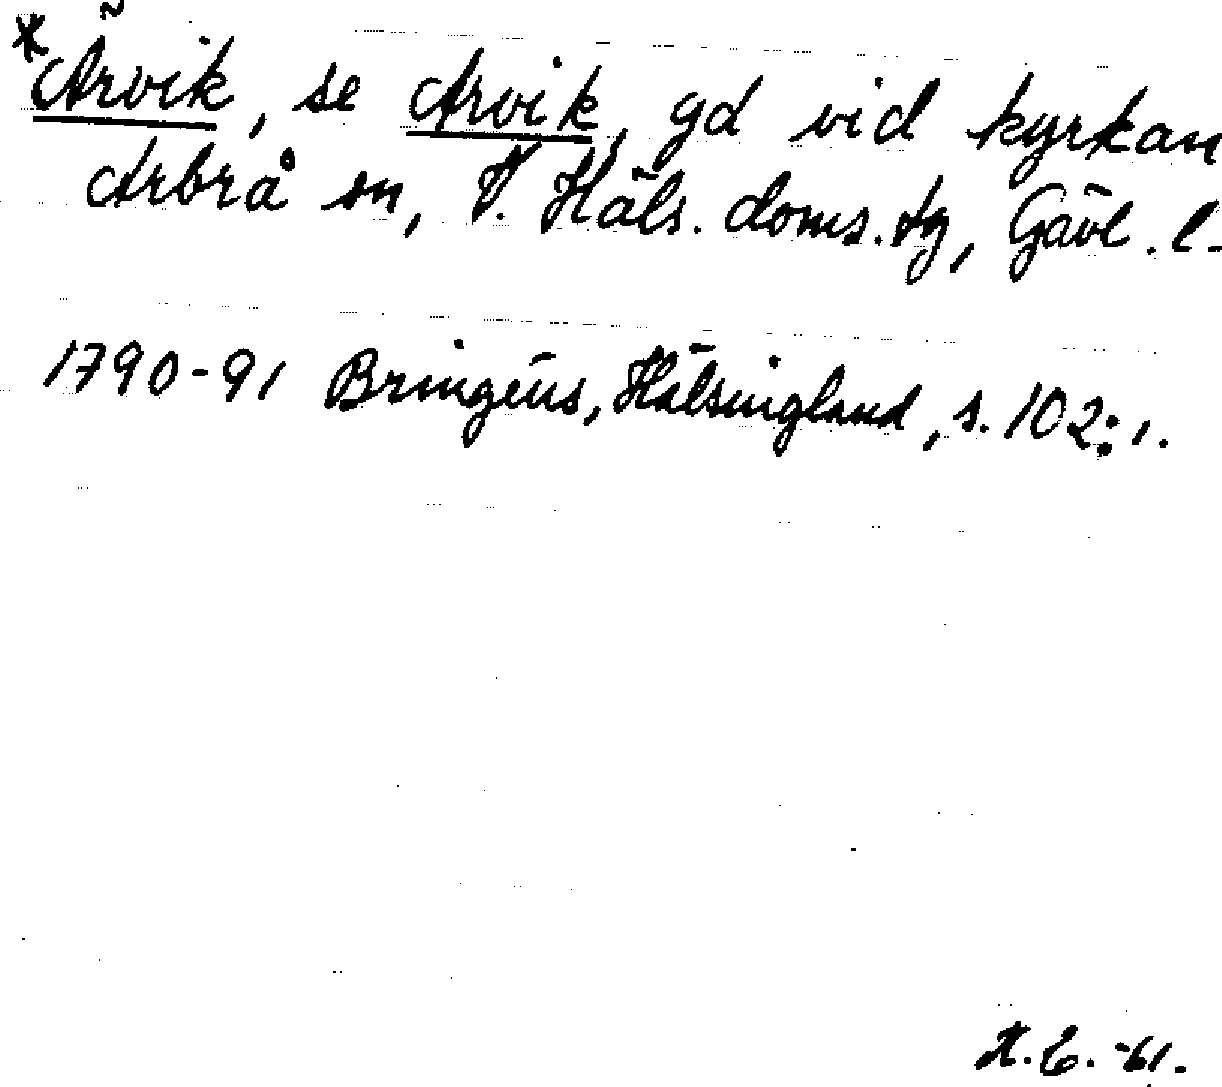 *Ärvik, se Arvik, gd vid kyrkan
Arbrå sn, V. Häls. doms. tg, Gävl. l.
1790-91 Bringéus, Hälsingland, s. 102:1.
-61.